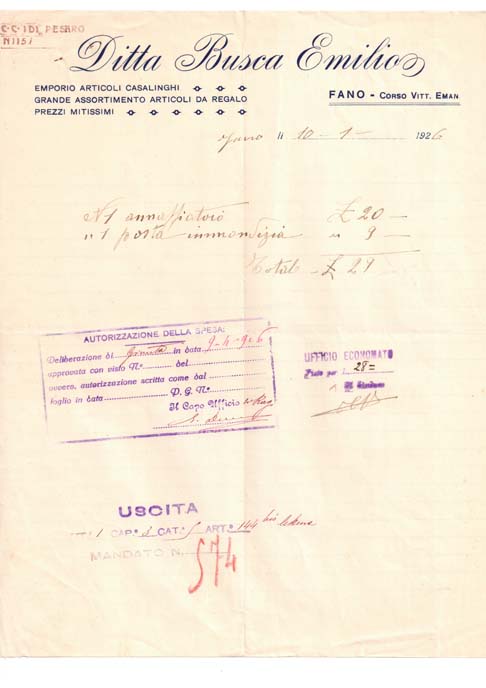 C·C·I DI PESARO
N 1157
Ditta Busca Emilio
EMPORIO ARTICOLI CASALINGHI
GRANDE ASSORTIMENTO ARTICOLI DA REGALO
PREZZI MITISSIMI
FANO - CORSO VITT. EMAN.
Fano li 10 - 1 - 1926
N 1 annaffiatoio £ 20 —
" 1 posta immondizia " 9 —
Total - £ 29
AUTORIZZAZIONE DELLA SPESA:
Deliberazione di in data 9-4-926
approvata con visto N.º del
ovvero, autorizzazione scritta come dal
foglio in data P. G. N.º
Il Capo Ufficio
UFFICIO ECONOMATO
Visto per L. 28=
USCITA
CAP.º CAT. 5 ART.º 144 bis
MANDATO N.
574